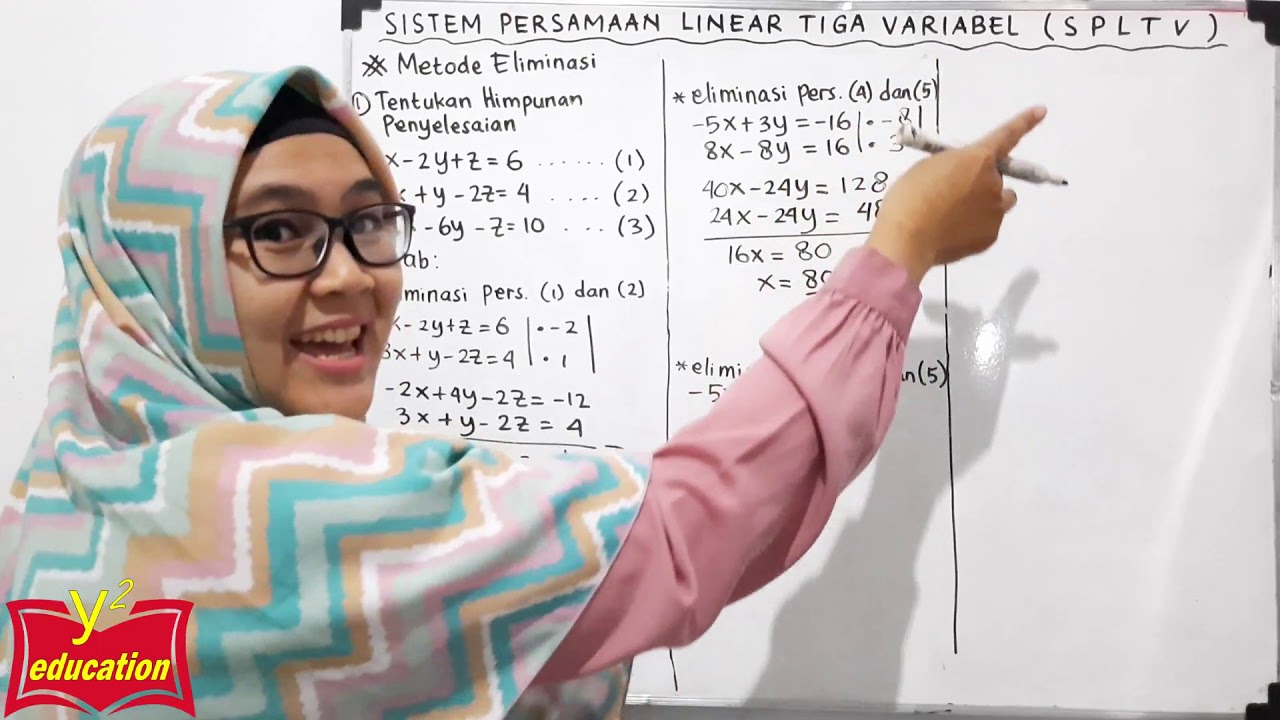 SISTEM PERSAMAAN LINEAR TIGA VARIABEL (SPLTV)
Metode Eliminasi
① Tentukan Himpunan
Penyelesaian
x - 2y + z = 6 ...... (1)
+ y - 2z = 4 .... (2)
- 6y - z = 10 ... (3)
ab:
minasi Pers. (1) dan (2)
x - 2y + z = 6 | • -2 |
3x + y - 2z = 4 | • 1 |
-2x + 4y - 2z = -12
3x + y - 2z = 4
* eliminasi Pers. (4) dan (5)
-5x + 3y = -16 | • -8 |
8x - 8y = 16 | • 3
40x - 24y = 128
24x - 24y = 48
16x = 80
x = 80
* elimi an (5)
-5
y²
education